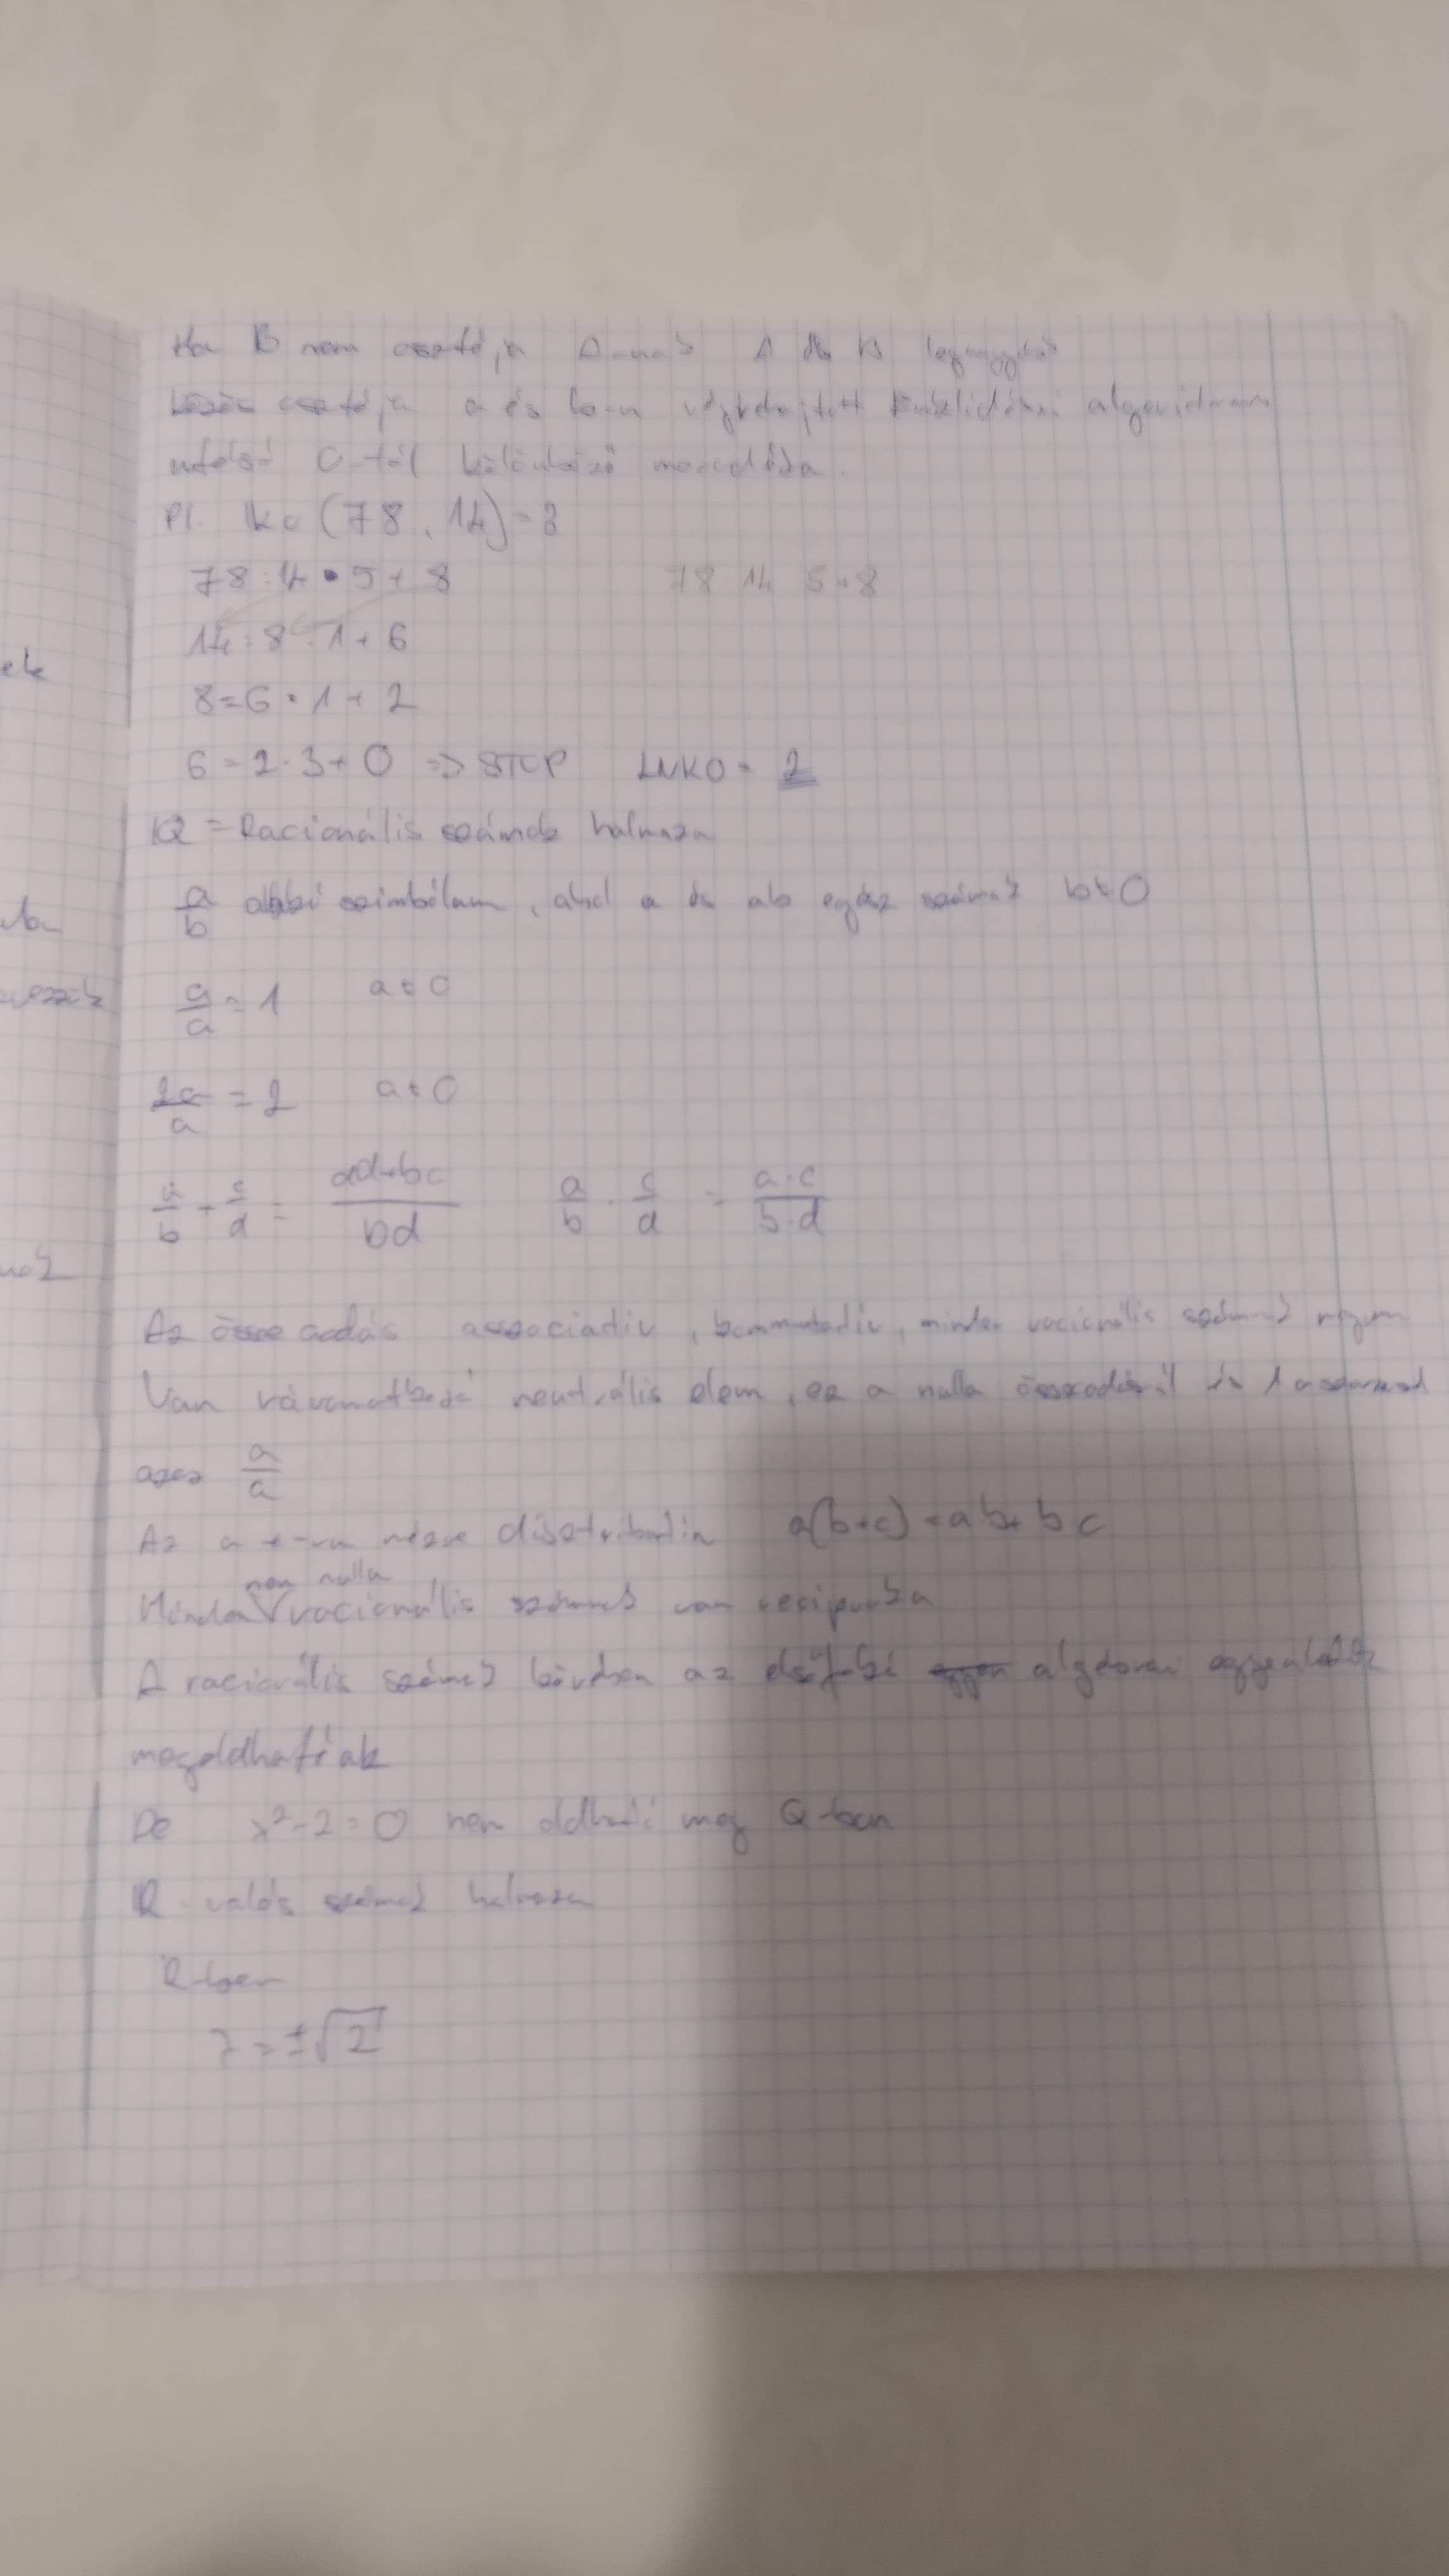 Ha B nem osztója A-nak A és B legnagyobb
közös osztója a és b-n végrehajtott Euklidészi algoridmus
utolsó 0-tól különböző maradéka.
Pl. lko (78, 14) = 
78 = 14 • 5 + 8 78 14 5+8
14 = 8 · 1 + 6
8 = 6 · 1 + 2
6 = 2 · 3 + 0 => STOP LNKO = 2
Q = Racionális számok halmaza
a/b alaki szimbólum, ahol a és ab egész számok b≠0
a/a = 1 a≠0
2a/a = 2 a≠0
a/b + c/d = ad+bc/bd a/b · c/d = a·c/b·d
Az össze adás associativ, kommutadiv, minden racionális számnak
Van neutrális elem, ez a nulla összeadásnál és 1 a
azaz a/a
Az a +-ra nézve disztributiv a(b+c) = ab+bc
nem nulla
Minden racionális számnak van reciproka
A racionális számok körében az elsőfokú algebrai egyenletek
megoldhatóak
De x²-2=0 nem oldható meg Q-ban
R valós számok halmaza
R-ben
= ±√2